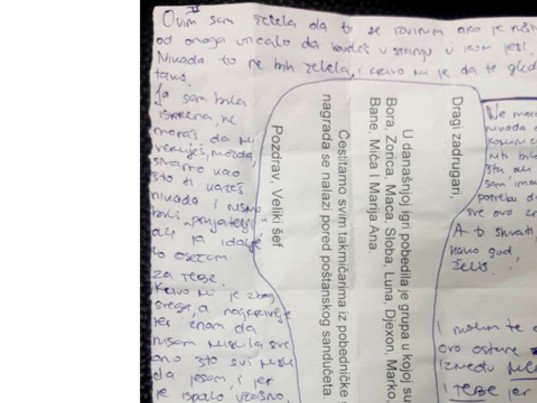 II
Ovim sam želela da ti se izvinem ako je nešto
od onoga uticalo da budeš u stanju u kom jesi.
Nikada to ne bih želela, i krivo mi je da te gled
tako.
Ja sam bila
iskrena, ne
moraš da mi
veruješ, možda
stvarno kao
što ti kažeš
nikada i nismo
bili prijatelji
ali ja idalje
to osećam
za tebe.
Krivo mi je zbog
svega, a najkrivlje
jer znam da
nisam mislila sve
ono što svi misle
da jesam, i jer
je ispalo užasno,
Dragi zadrugari,
U današnjoj igri pobedila je grupa u kojoj su
Bora, Zorica, Maca, Sloba, Luna, Djexon, Marko,
Bane, Mića I Marija Ana
Čestitamo svim takmičarima iz pobedničke
nagrada se nalazi pored poštanskog sandučeta
Pozdrav, Veliki šef
Ne mora
nikada
niti bilo
šta ali
sam
potrebu da
sve ovo
A to shvati
kako god
želiš.
I molim te
ovo ostane
između
i tebe jer